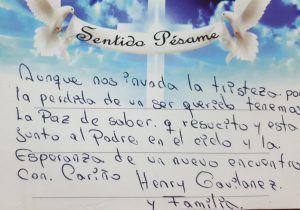 Sentido Pésame
Aunque nos invada la tristeza por
la perdida de un ser querido tenemos
La Paz de saber q resucito y esta
junto al Padre en el cielo y la
Esperanza de un nuevo encuentro
Con Cariño Henry Gavilanez
y Familia.